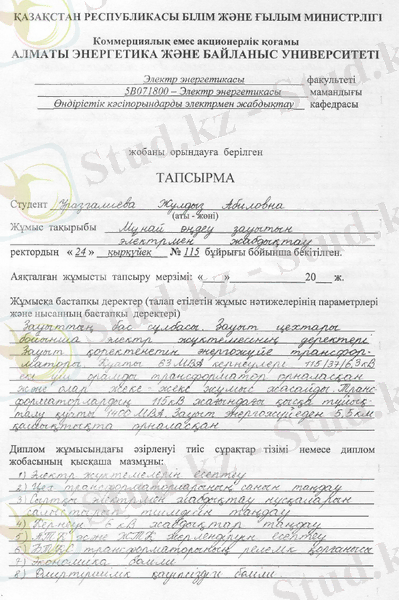 ҚАЗАҚСТАН РЕСПУБЛИКАСЫ БІЛІМ ЖӘНЕ ҒЫЛЫМ МИНИСТРЛІГІ
Коммерциялық емес акционерлік қоғамы
АЛМАТЫ ЭНЕРГЕТИКА ЖӘНЕ БАЙЛАНЫС УНИВЕРСИТЕТІ
Электр энергетикасы факультеті
5В071800 – Электр энергетикасы мамандығы
Өндірістік кәсіпорындарды электрмен жабдықтау кафедрасы
жобаны орындауға берілген
ТАПСЫРМА
Студент Жулдыз Абиловна
(аты - жөні)
Жұмыс тақырыбы Мұнай өңдеу зауытын
электрмен жабдықтау
ректордың « 24 » қыркүйек № 115 бұйрығы бойынша бекітілген.
Аяқталған жұмысты тапсыру мерзімі: « » 20 ж.
Жұмысқа бастапқы деректер (талап етілетін жұмыс нәтижелерінің параметрлері
және нысанның бастапқы деректері)
Зауыттың бас сұлбасы. Зауыт цехтары
бойынша электр жүктемесінің деректері
Зауыт қоректенетін энергожүйе трансфор-
маторы. Қуаты 63 МВА кернеулері 115/37/6,3кВ
екі үш орамды трансформатор орналасқан
және олар жеке-жеке жұмыс жасайды. Транс
форматорлардың 115кВ жағындағы қысқа тұйық-
талу қуаты 1400 МВА. Зауыт энергожүйеден 5,5 км
қашықтықта орналасқан
Диплом жұмысындағы әзірленуі тиіс сұрақтар тізімі немесе диплом
жобасының қысқаша мазмұны:
1) Электр жүктемелерін есептеу
2) Цех трансформаторларының санын таңдау
3) Сыртқы электрмен жабдықтау нұсқаларын
салыстырып тиімдісін таңдау
4) Кернеуі 6 кВ жабдықтар таңдау
5) ЖТҚ және ЖТҚ жерлендіруін есептеу
6) БТҚС трансформаторының релелік қорғанысы
7) Экономика бөлімі
8) Өміртіршілік қауіпсіздігі бөлімі
Stud.kz - Stud.kz